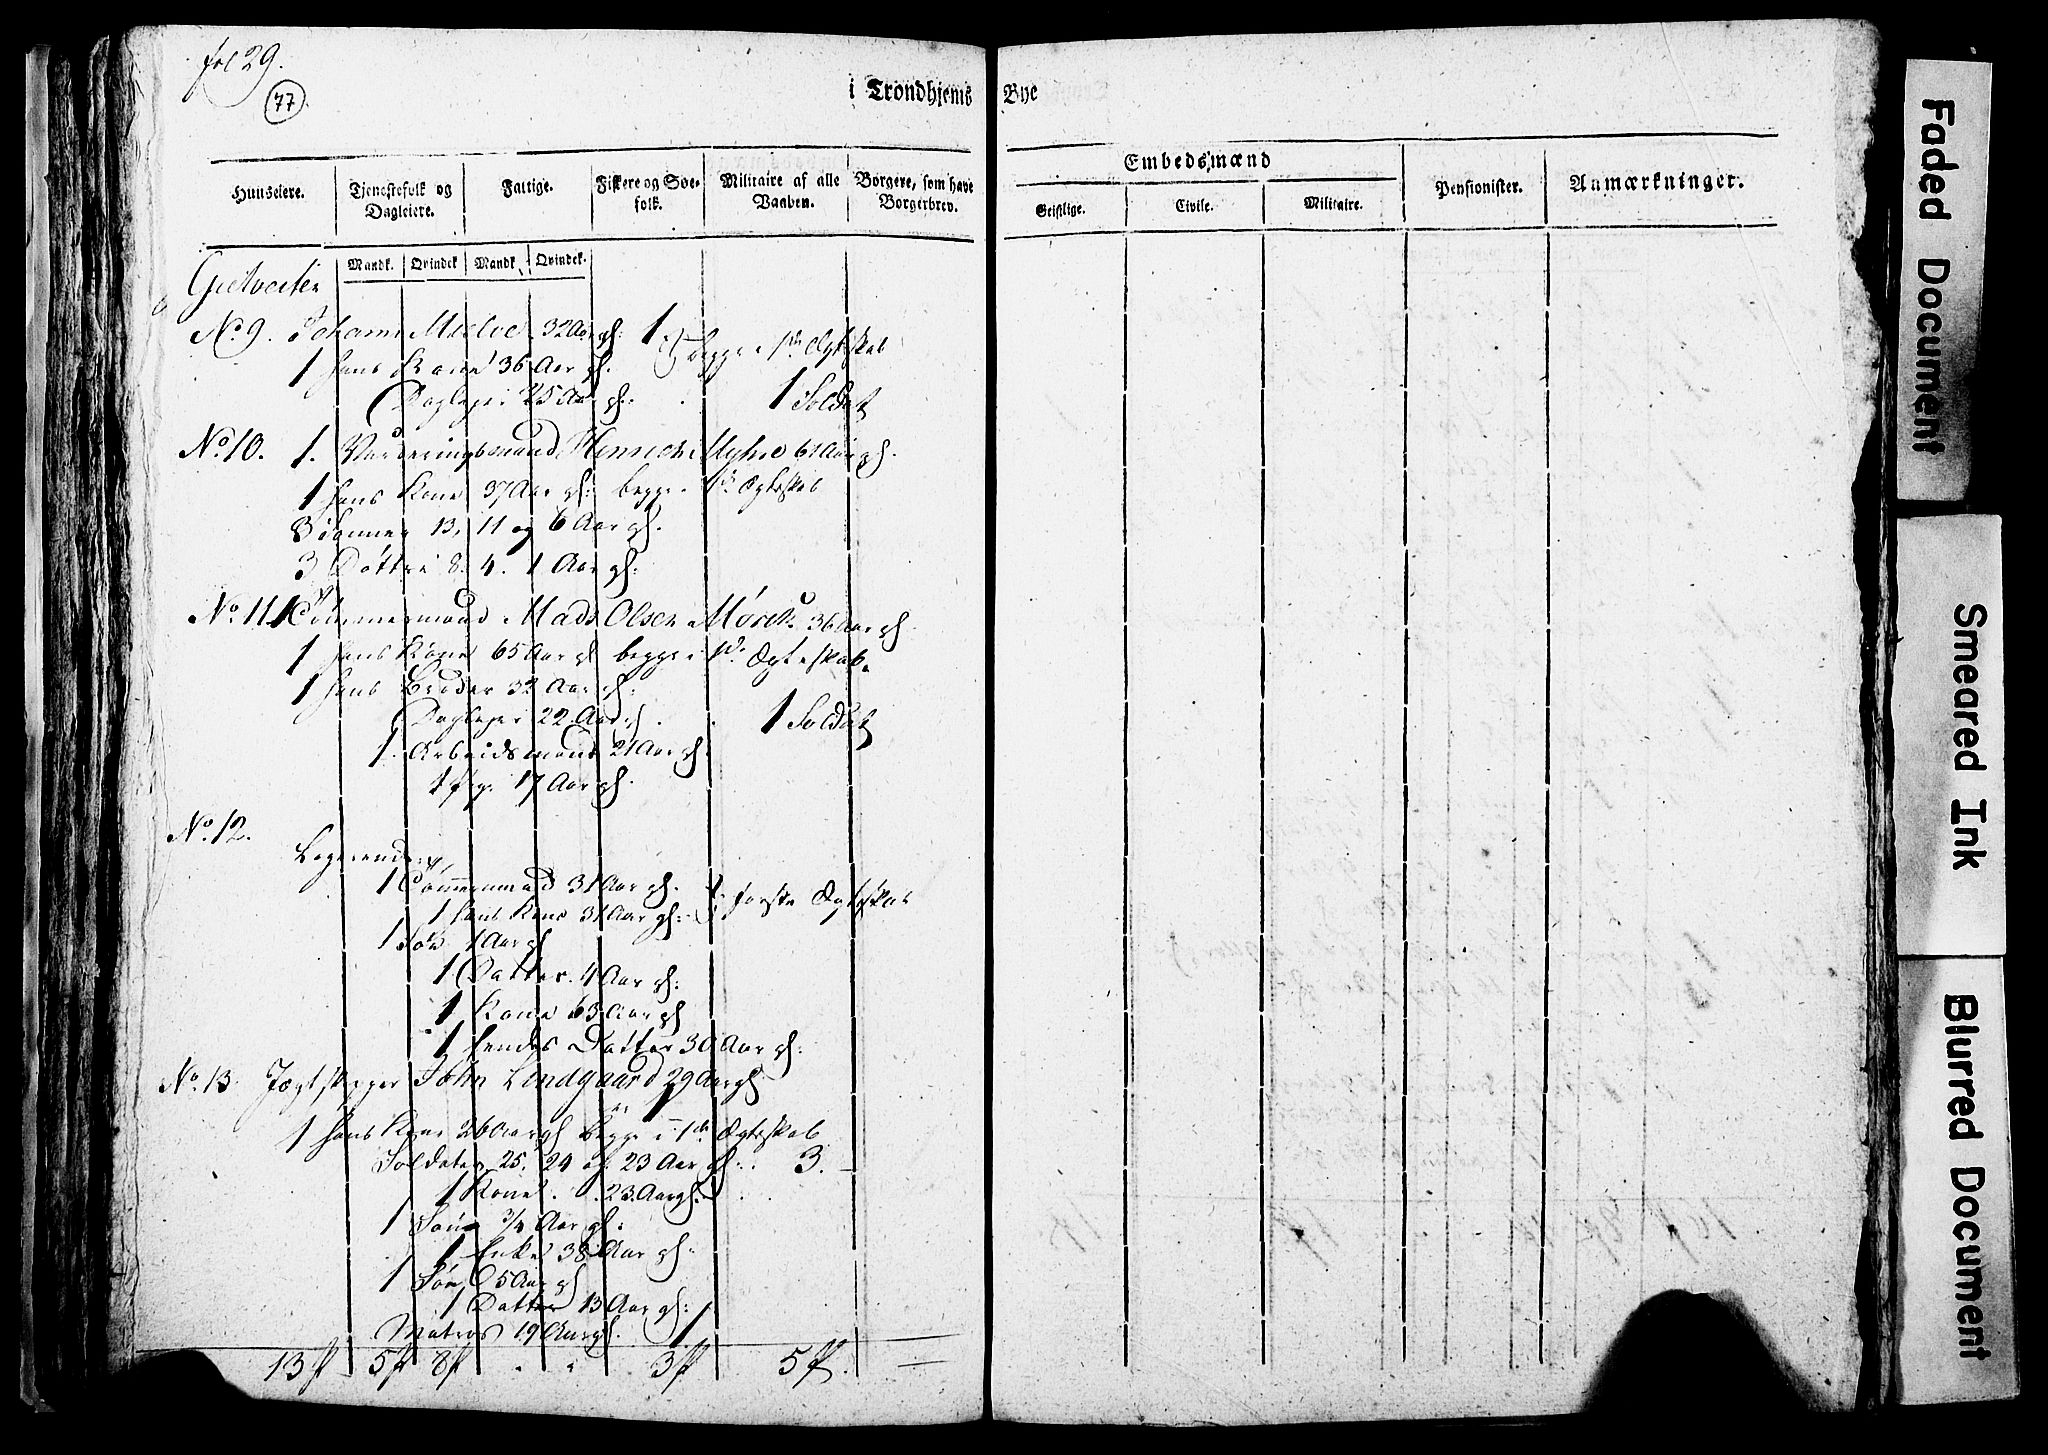 fol 29.
77.
i Trondhjems Bye
Huuseiere.
Tjenestefolk og Dagleiere.
Fattige.
Fiskere og Søe-folk.
Militaire af alle Vaaben.
Borgere, som have Borgerbrev.
Embedsmænd
Geistlige.
Civile.
Militaire.
Pensionister.
Anmærkninger.
Mandk. Qvindek Mandk. Qvindek.
No. 9. Johan Mielve 32 Aar gl: 1
1 hans Kone 36 Aar gl. begge i 1ste Ægteskab
Dagleyer 25 Aar gl: 1 Soldat
No. 10. 1. Vurderingsmand Henrich Myhre 61 Aar gl.
1 hans Kone 37 Aar gl: begge i 1ste Ægteskab
3 Sønner 13, 11 og 6 Aar gl.
3 Døttre 8. 4. 1 Aar gl:
No. 11. 1 Tømmermand Mads Olsen Mørch 36 Aar gl.
1 hans Kone 65 Aar gl begge i 1ste Ægteskab.
1 hans Broder 32 Aar gl:
Dagleyer 22 Aar gl. 1 Soldat
1. Arbeidsmand 21 Aar gl.
1 Pige 17 Aar gl.
No. 12.
Logerende:
1 Tømmermand 31 Aar gl.
1 hans Kone 31 Aar gl: i første Ægteskab
1 Søn 1 Aar gl
1 Datter 4 Aar gl:
1 Kone 63 Aar gl
1 hendes Datter 30 Aar gl:
No. 13. Jægtskipper John Lindgaard 29 Aar gl. 1
1 hans Kone 26 Aar gl begge i 1ste Ægteskab
Soldater 25, 24 og 23 Aar gl: 3.
1 Kone 23 Aar gl.
1 Søn 3/4 Aar gl:
1 Enke 38 Aar gl:
1 Søn 5 Aar gl
1 Datter 13 Aar gl:
Matros 19 Aar gl. 1
13 5 8 3 5 —
Faded Document
Smeared Ink
Blurred Document